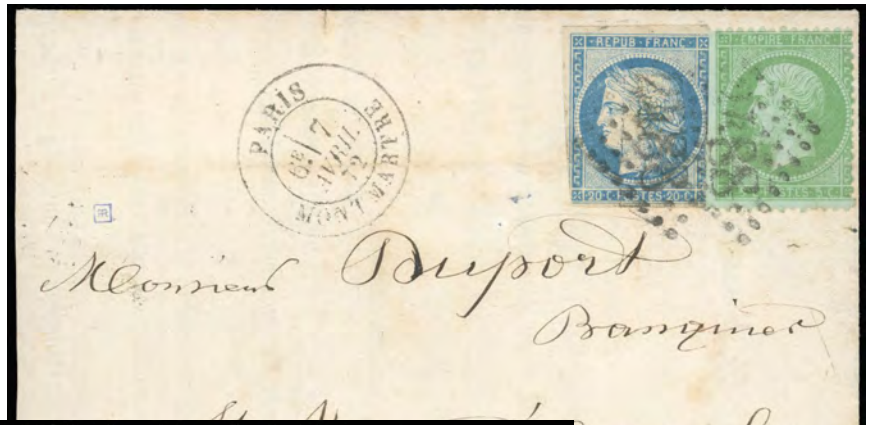 PARIS
6E / 7
AVRIL
72
MONTMARTRE
REPUB · FRANC ·
20 · C · POSTES · 20 · C
EMPIRE FRANC
POSTES · 5 · C
Monsieur Duport